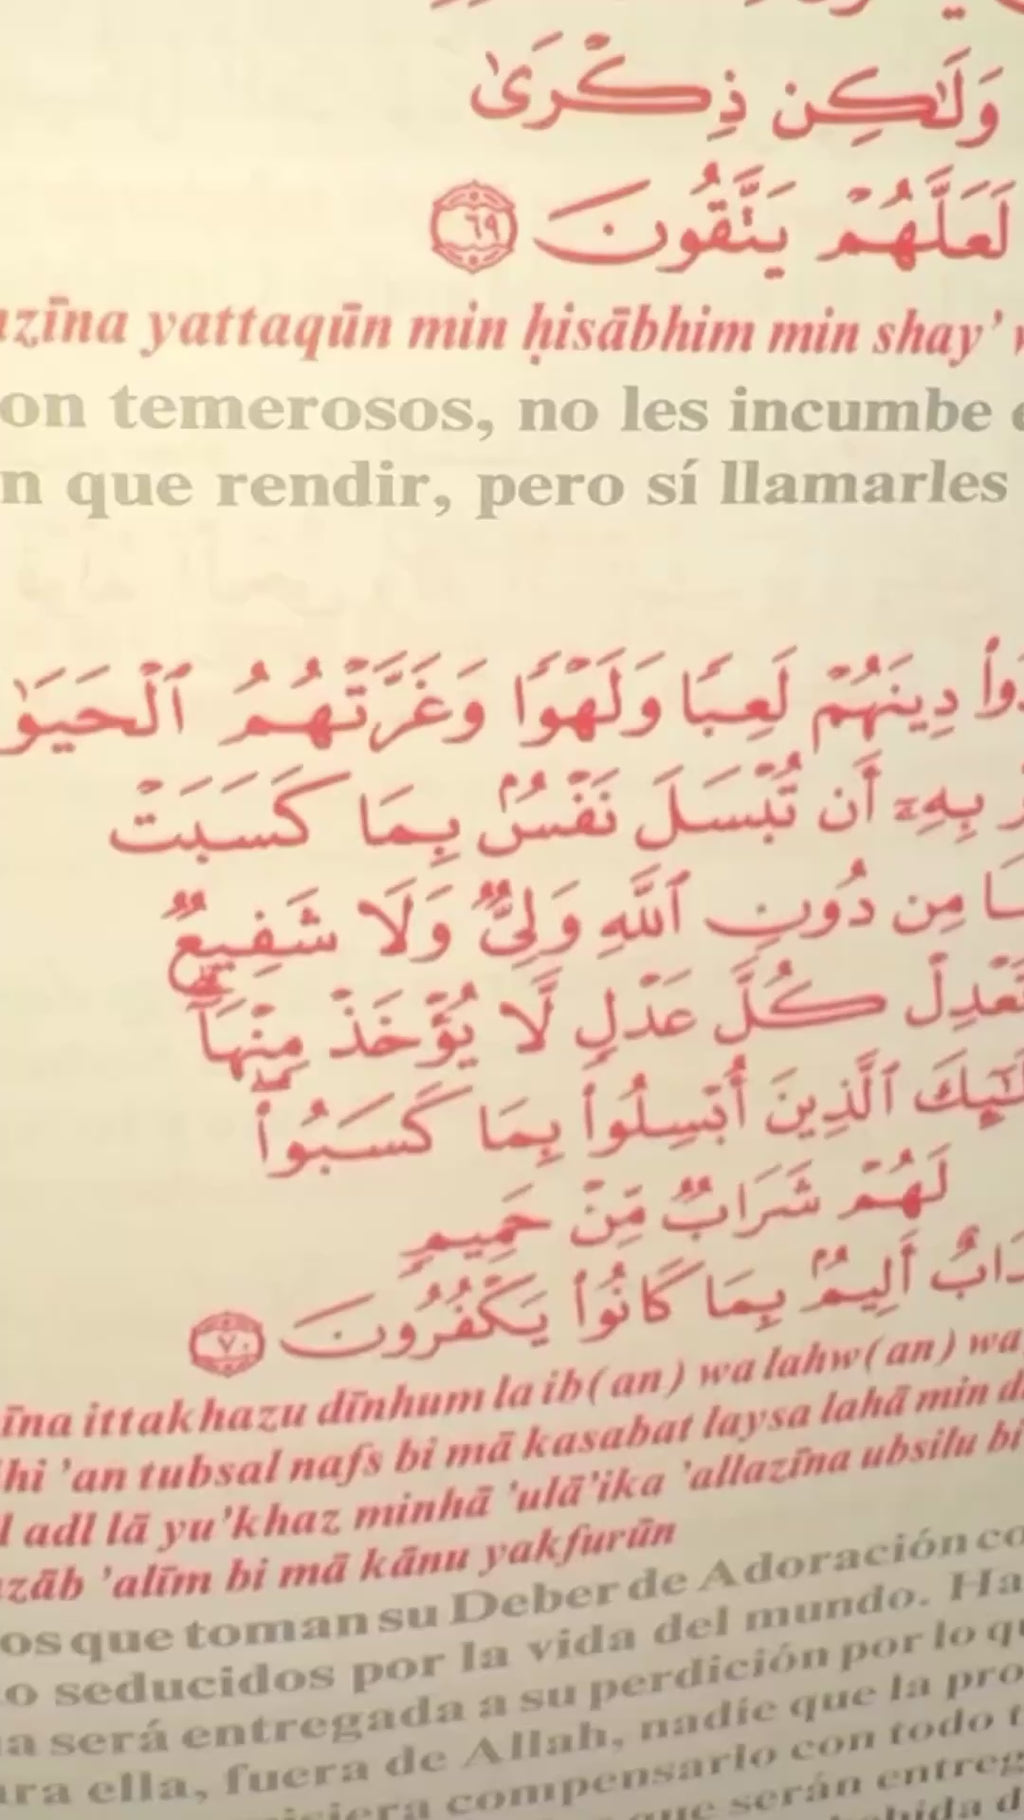 وَلَٰكِن ذِكْرَىٰ
لَعَلَّهُمْ يَتَّقُونَ ٦٩
yattaqūn min ḥisābhim min shay’
temerosos, no les incumbe
que rendir, pero sí llamarles
دِينَهُمْ لَعِبًا وَلَهْوًا وَغَرَّتْهُمُ
بِهِۦٓ أَن تُبْسَلَ نَفْسٌۢ بِمَا كَسَبَتْ
مِن دُونِ ٱللَّهِ وَلِىٌّ وَلَا شَفِيعٌ
تَعْدِلْ كُلَّ عَدْلٍ لَّا يُؤْخَذْ مِنْهَآ ۗ
ٱلَّذِينَ أُبْسِلُوا۟ بِمَا كَسَبُوا۟ ۖ
لَهُمْ شَرَابٌ مِّنْ حَمِيمٍ
أَلِيمٌۢ بِمَا كَانُوا۟ يَكْفُرُونَ ٧٠
ittakhazu dīnhum la ib(an) wa lahw(an) wa
’an tubsal nafs bi mā kasabat laysa lahā min
adl lā yu’khaz minhā ’ulā’ika ’allazīna ubsilu bi
’alīm bi mā kānu yakfurūn
que toman su Deber de Adoración
seducidos por la vida del mundo.
será entregada a su perdición por lo
ella, fuera de Allah, nadie que la
compensarlo con todo
que serán